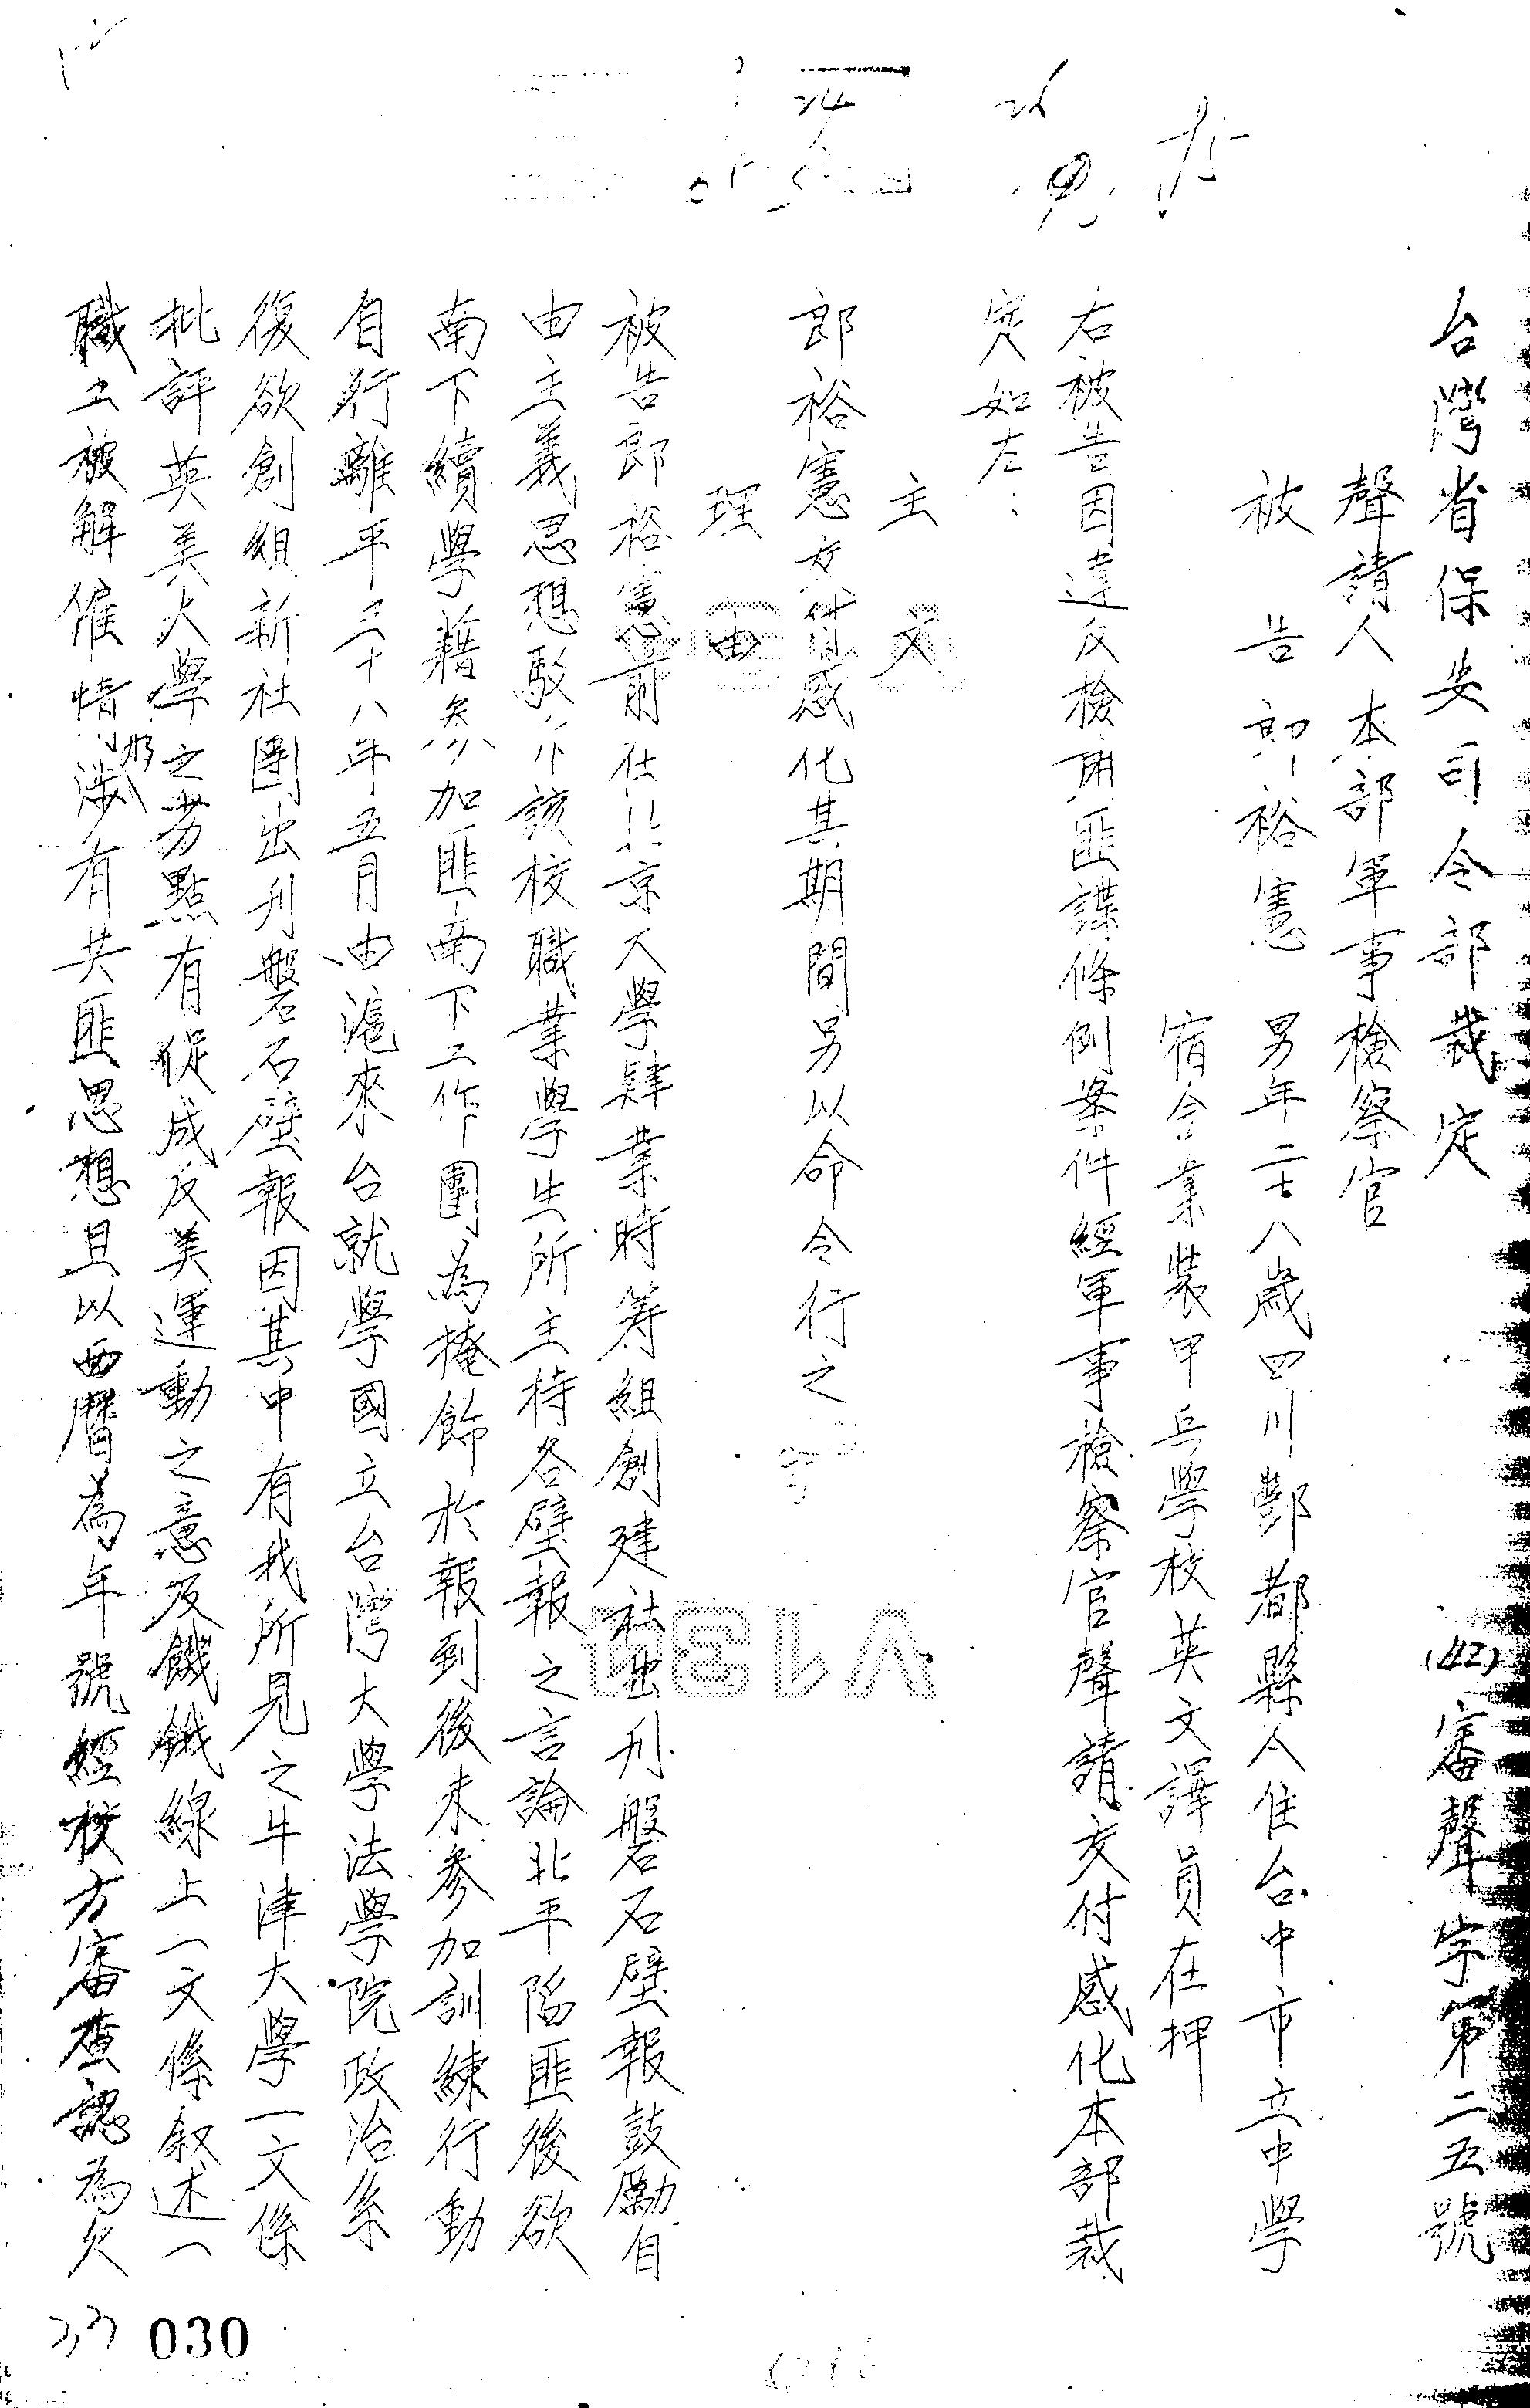 台灣省保安司令部裁定 (42)審聲字第二五號
聲請人 本部軍事檢察官
被告 郎裕憲 男年二十八歲四川酆都縣人住台中市立中學
宿舍業裝甲兵學校英文譯員在押
右被告因違反檢肅匪諜條例案件經軍事檢察官聲請交付感化本部裁
定如左：
主文
郎裕憲交付感化其期間另以命令行之
理由
被告郎裕憲前在北京大學肄業時籌組創建社出刊磐石壁報鼓勵自
由主義思想駁斥該校職業學生所主持各壁報之言論北平陷匪後欲
南下續學藉參加匪南下工作團為掩飾於報到後未參加訓練行動
自行離平三十八年五月由滬來台就學國立台灣大學法學院政治系
復欲創組新社團出刊磐石壁報因其中有我所見之牛津大學一文係
批評英美大學之劣點有促成反美運動之意及饑餓線上一文係叙述一
職工被解僱情形涉有共匪思想且以西曆為年號經校方審查認為欠
33 030